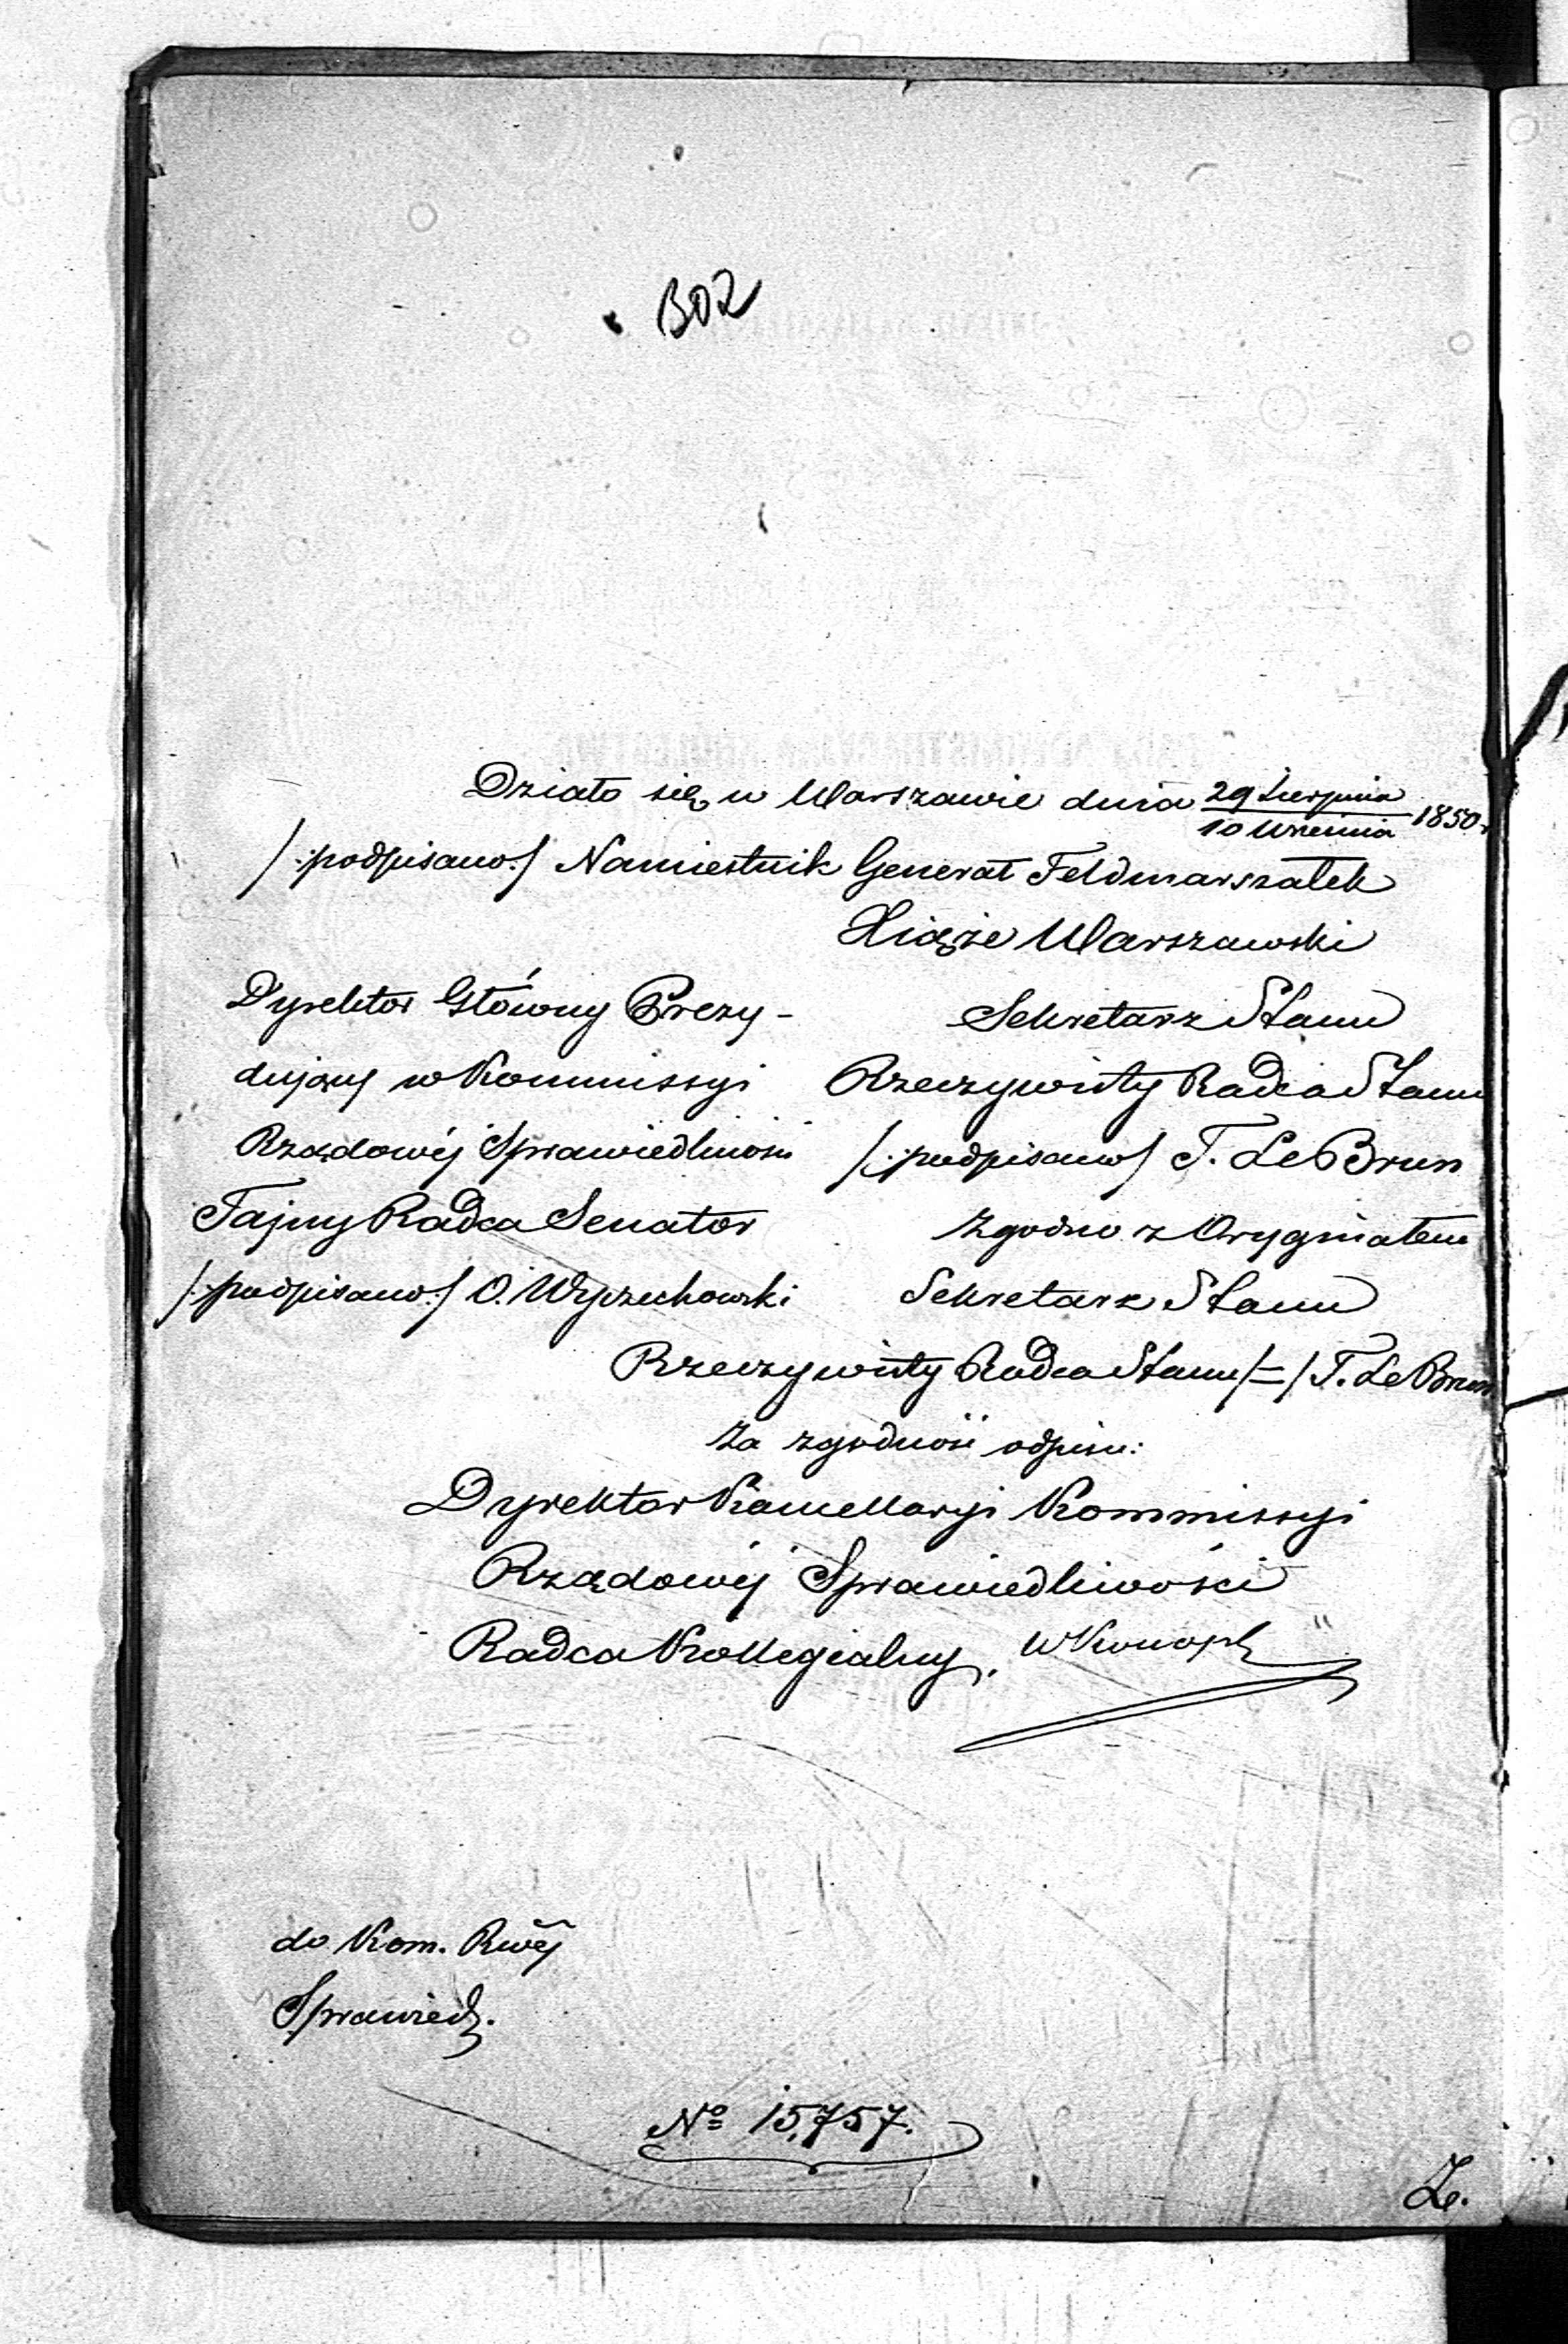 302
Działo się w Warszawie dnia 29 Sierpnia / 10 Września 1850 r.
/:podpisano:/ Namiestnik Generał Feldmarszałek
Xiąże Warszawski
Dyrektor Główny Prezy-
dujący w Kommissyi
Rządowéj Sprawiedliwości
Tajny Radca Senator
/:podpisano:/ O. Wyczechowski
Sekretarz Stanu
Rzeczywisty Radca Stanu
/:podpisano/ T. Le Brun
Zgodno z Oryginałem
Sekretarz Stanu
Rzeczywisty Radca Stanu /=/ T. Le Brun
Za zgodność odpisu:
Dyrektor Kancellaryi Kommissyi
Rządowéj Sprawiedliwości
Radca Kollegialny,
do Kom. Rwéj
Sprawied.
No 15,757.
Z.